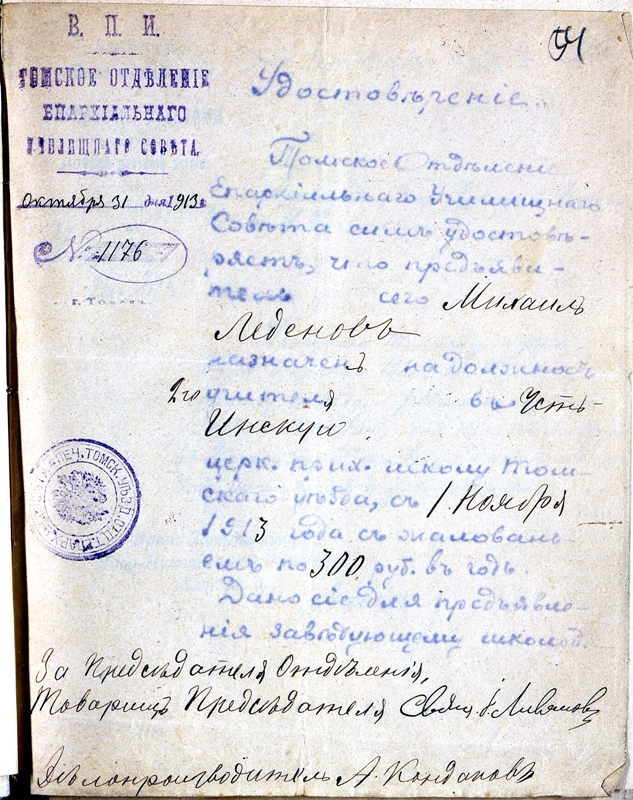 В. П. И.
ТОМСКОЕ ОТДѢЛЕНІЕ
ЕПАРХІАЛЬНАГО
УЧИЛИЩНАГО СОВѢТА.
Октября 31 дня 1913 г.
№ 1176
г. Томскъ.
Удостовѣреніе.
Томское Отдѣленіе
Епархіальнаго Училищнаго
Совѣта симъ удостовѣ-
ряетъ, что предъяви-
тель сего Михаилъ
Леденовъ
назначенъ на должность
2го учителя въ Усть-
Инскую
церк. прих. школу Том-
скаго уѣзда, съ 1 Ноября
1913 года съ жаловань-
емъ по 300 руб. въ годъ.
Дано сіе для предъявле-
нія завѣдующему школой.
За Предсѣдателя Отдѣленія,
Товарищъ Предсѣдателя
Дѣлопроизводитель А. Кондаковъ